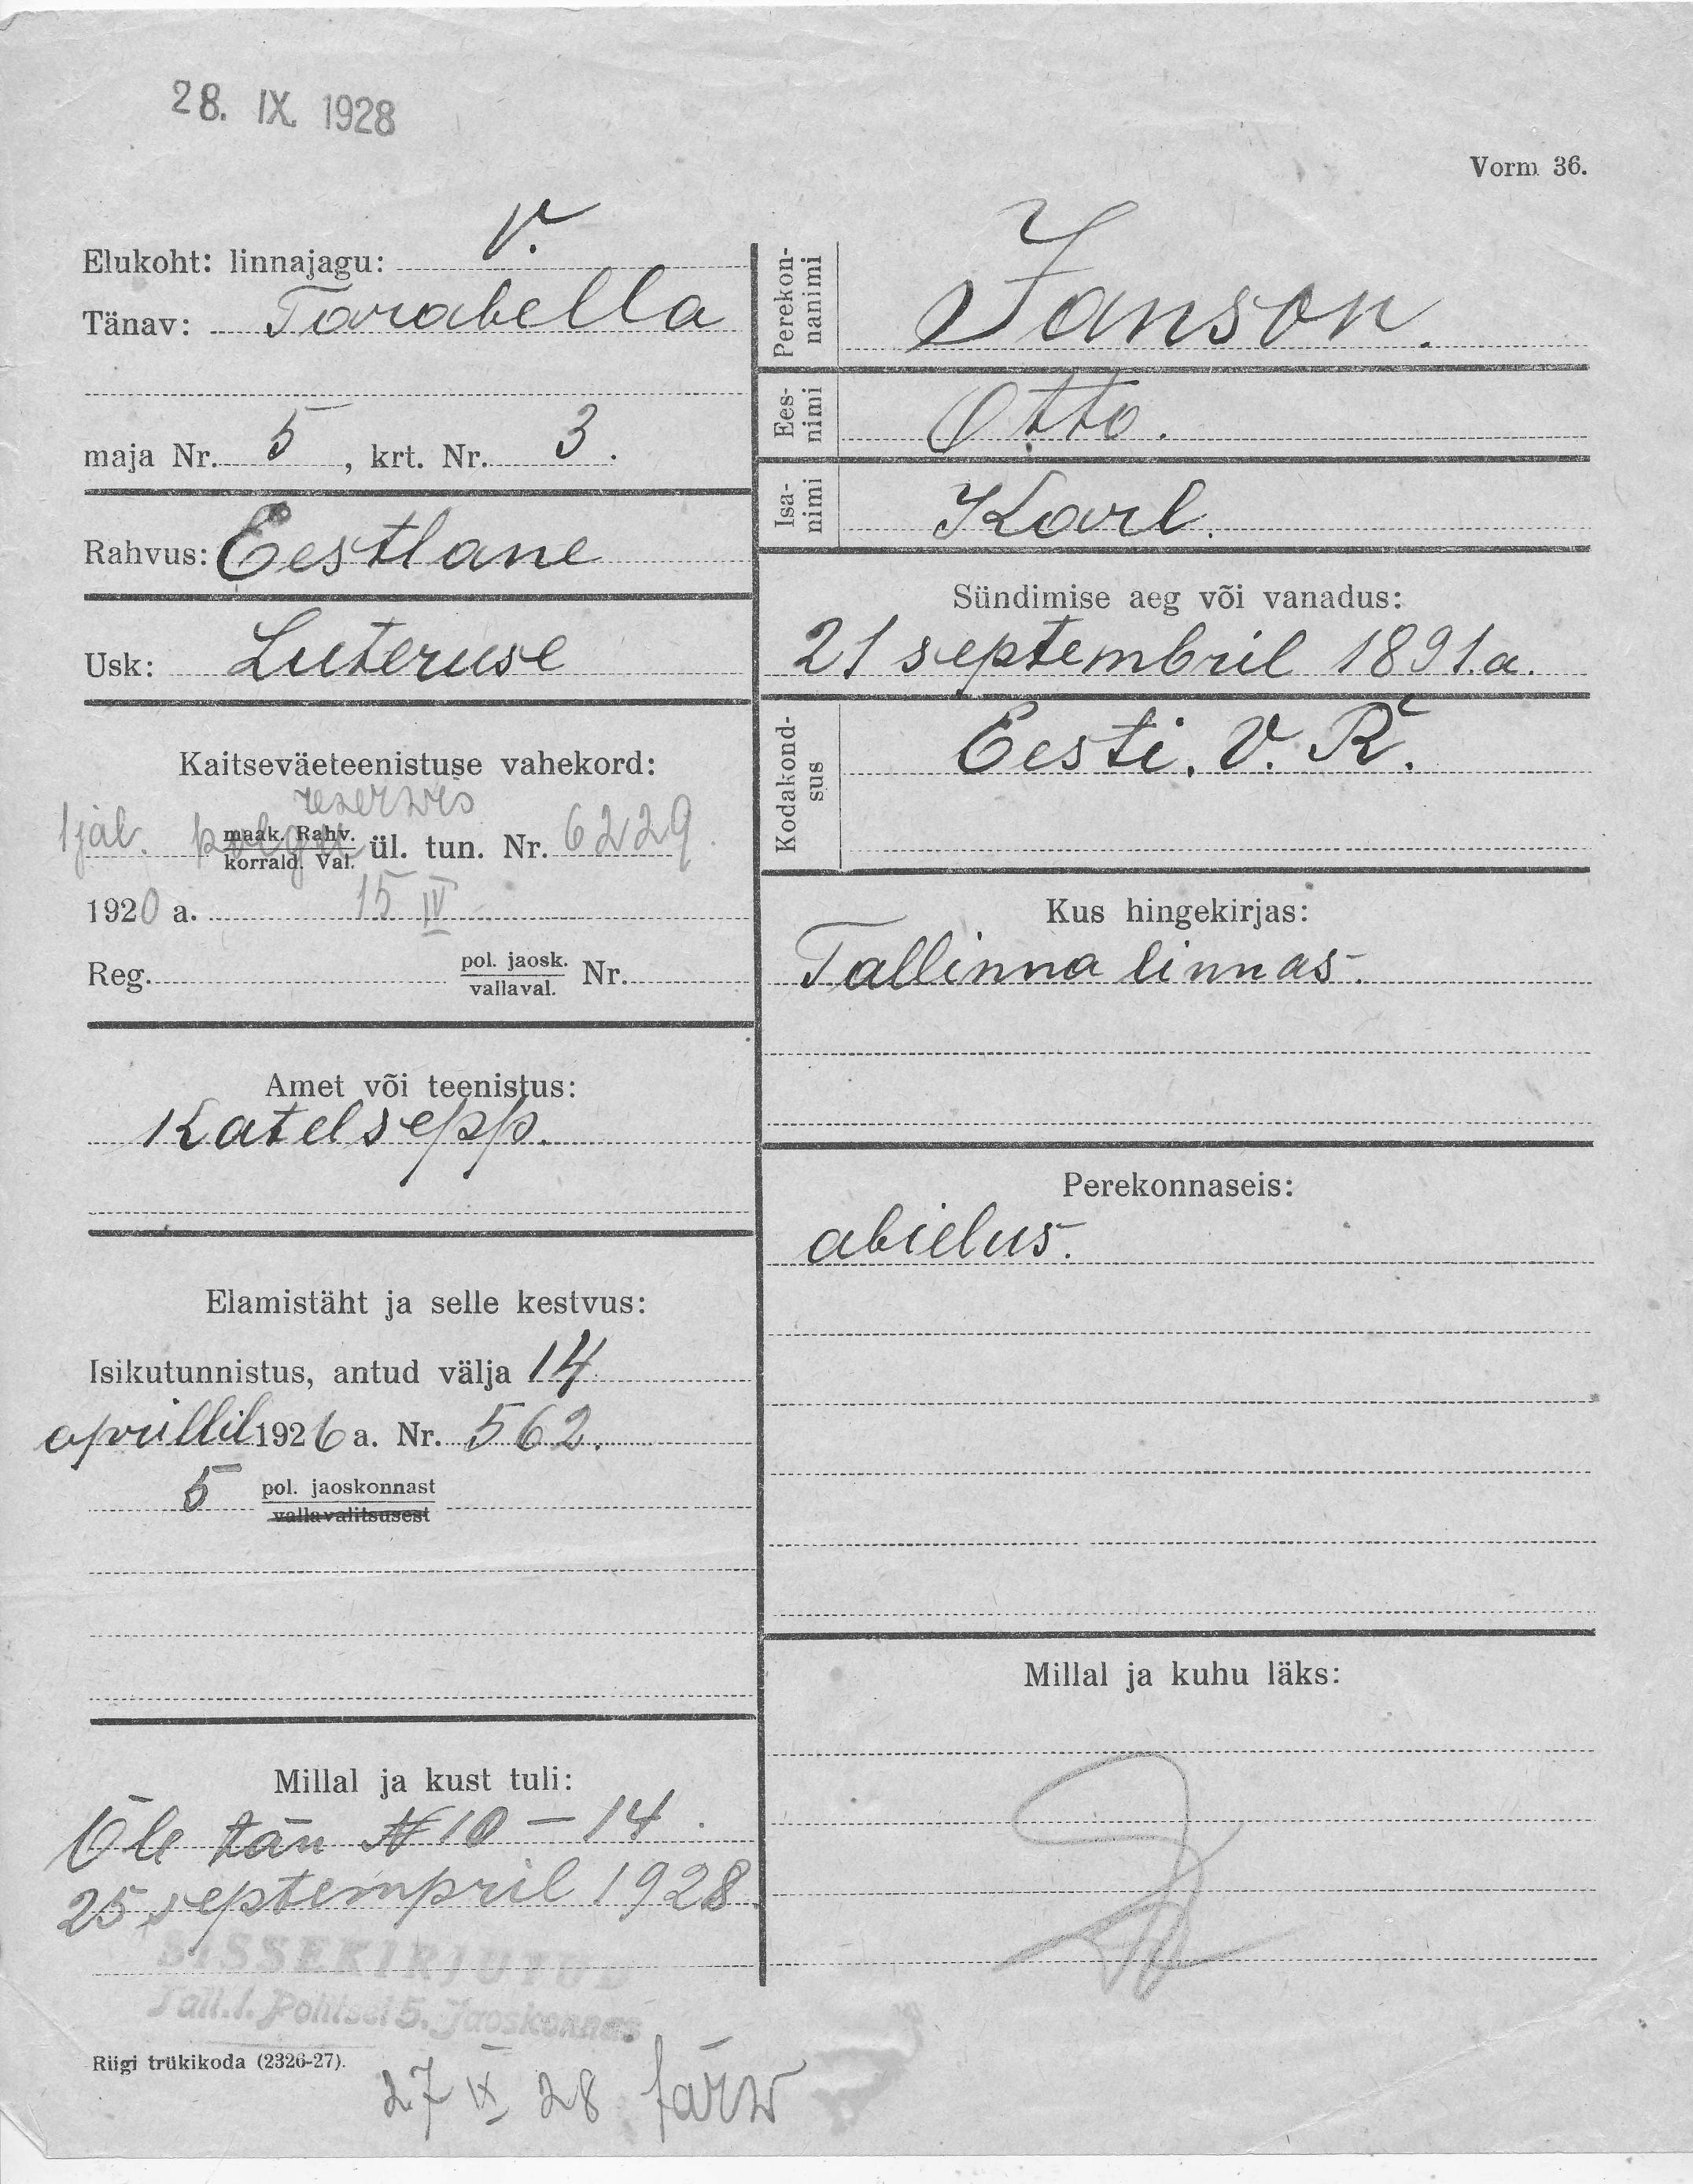 28. IX. 1928
Vorm 36.
Elukoht: linnajagu: V.
Tänav: Tarabella
maja Nr. 5, krt. Nr. 3.
Rahvus: Eestlane
Usk: Luteruse
Kaitseväeteenistuse vahekord:
reservis
1 jal. polgu maak. Rahv. korrald. Val. ül. tun. Nr. 6229.
1920 a. 15 IV
Reg. pol. jaosk. vallaval. Nr.
Amet või teenistus:
Katelsepp.
Elamistäht ja selle kestvus:
Isikutunnistus, antud välja 14
aprillil 1926 a. Nr. 562.
5 pol. jaoskonnast
vallavalitsusest
Millal ja kust tuli:
Õle tän № 10 – 14.
25 septempril 1928
SISSEKIRJUTUD
Tall. l. Politsei 5. Jaoskonnas
Riigi trükikoda (2326-27).
27 IX 28
Perekonnanimi
Janson.
Eesnimi
Otto.
Isanimi
Karl.
Sündimise aeg või vanadus:
21 septembril 1891.a.
Kodakondsus
Eesti. V. R.
Kus hingekirjas:
Tallinna linnas.
Perekonnaseis:
abielus.
Millal ja kuhu läks: